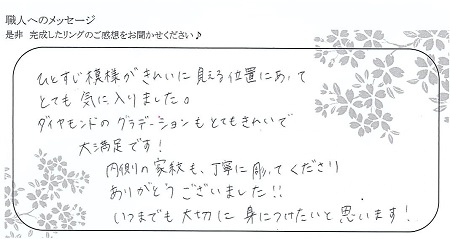 職人へのメッセージ
是非 完成したリングのご感想をお聞かせください♪
ひとすじ模様がきれいに見える位置にあって
とても気に入りました。
ダイヤモンドのグラデーションもとてもきれいで
大満足です！
内側の家紋も、丁寧に彫ってくださり
ありがとうございました!!
いつまでも大切に身につけたいと思います！